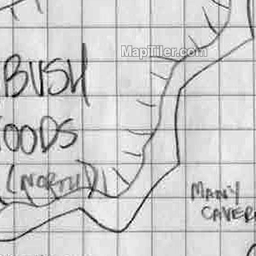 MapTiler.com
BUSH
OODS
(NORTH)
MANY
CAVER